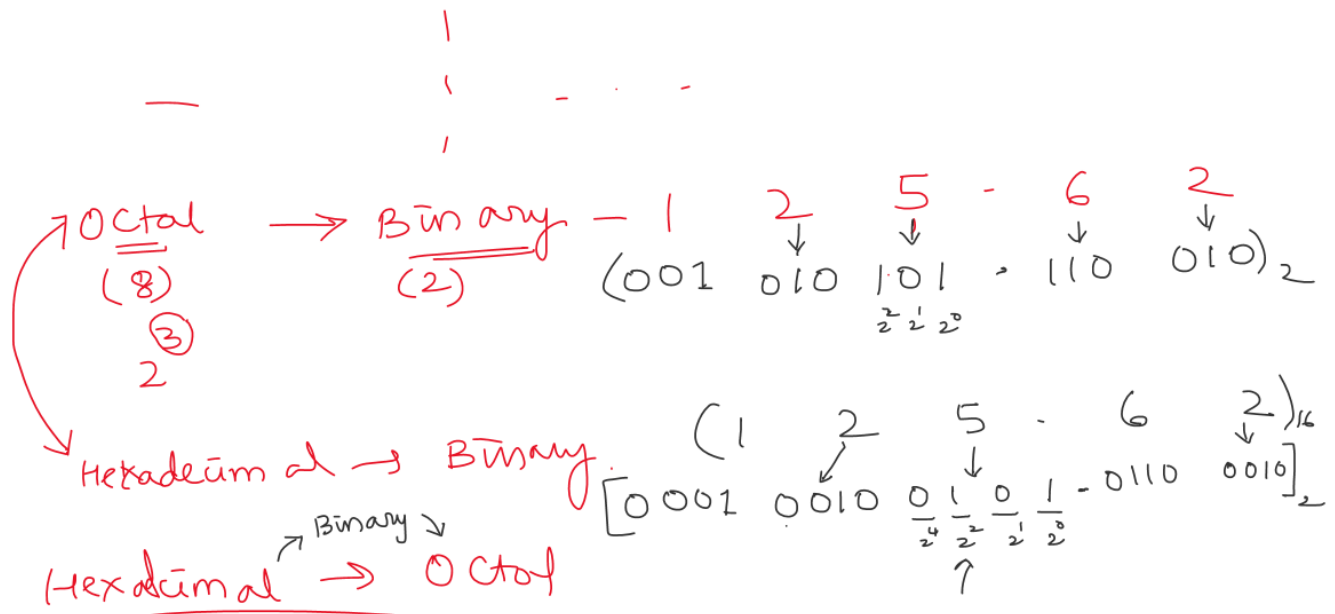 Octal → Binary - 1 2 5 . 6 2
(8) (2) (001 010 101 . 110 010)2
2^2 2^1 2^0
2^3
(1 2 5 . 6 2)16
Hexadecimal → Binary. [0001 0010 0101 . 0110 0010]2
2^4 2^2 2^1 2^0
Binary
Hexadcimal → Octal